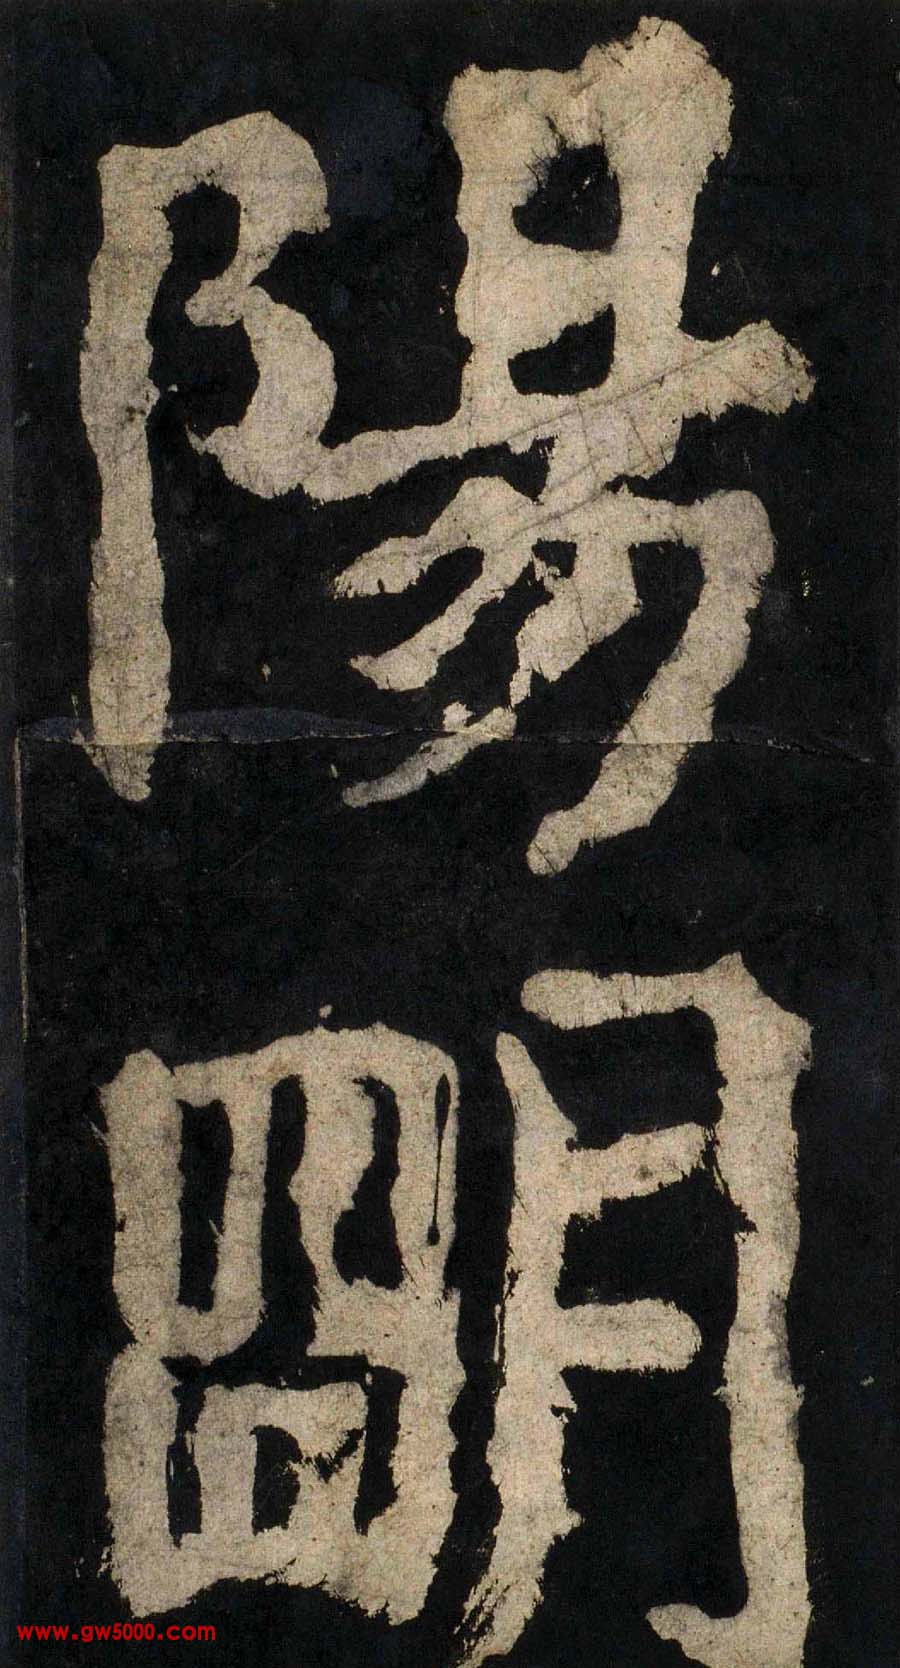 陽
朙
www.gw5000.com